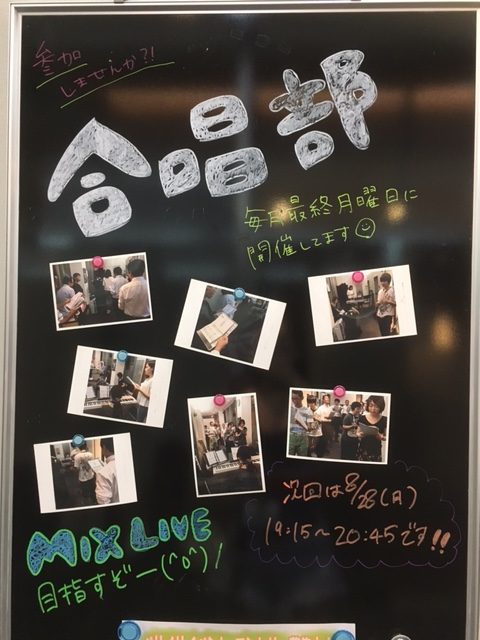 参加
しませんか?!
合唱部
毎月最終月曜日に
開催してます
次回は8/28(月)
19:15~20:45です!!
MIX LIVE
目指すぞー(^o^)/